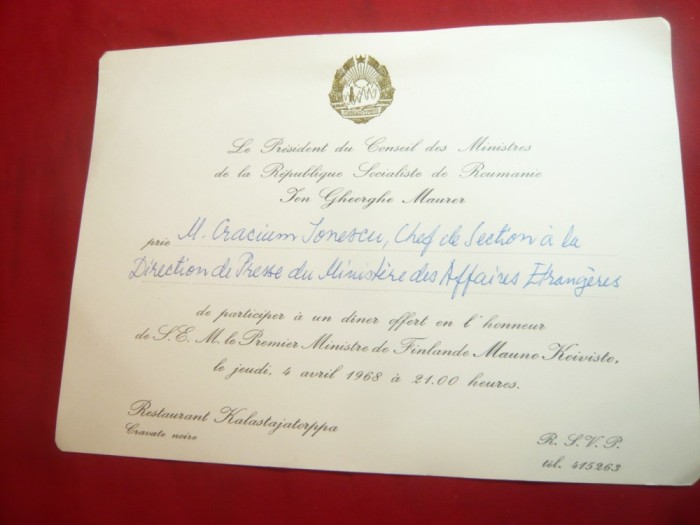 Le Président du Conseil des Ministres
de la République Socialiste de Roumanie
Ion Gheorghe Maurer
prie M. Craciun Ionescu, Chef de Section à la
Direction de Presse du Ministère des Affaires Etrangères
de participer à un dîner offert en l'honneur
de S.E. M. le Premier Ministre de Finlande Mauno Koivisto,
le jeudi, 4 avril 1968 à 21.00 heures.
Restaurant Kalastajatorppa
Cravate noire
R.S.V.P.
tél. 415263